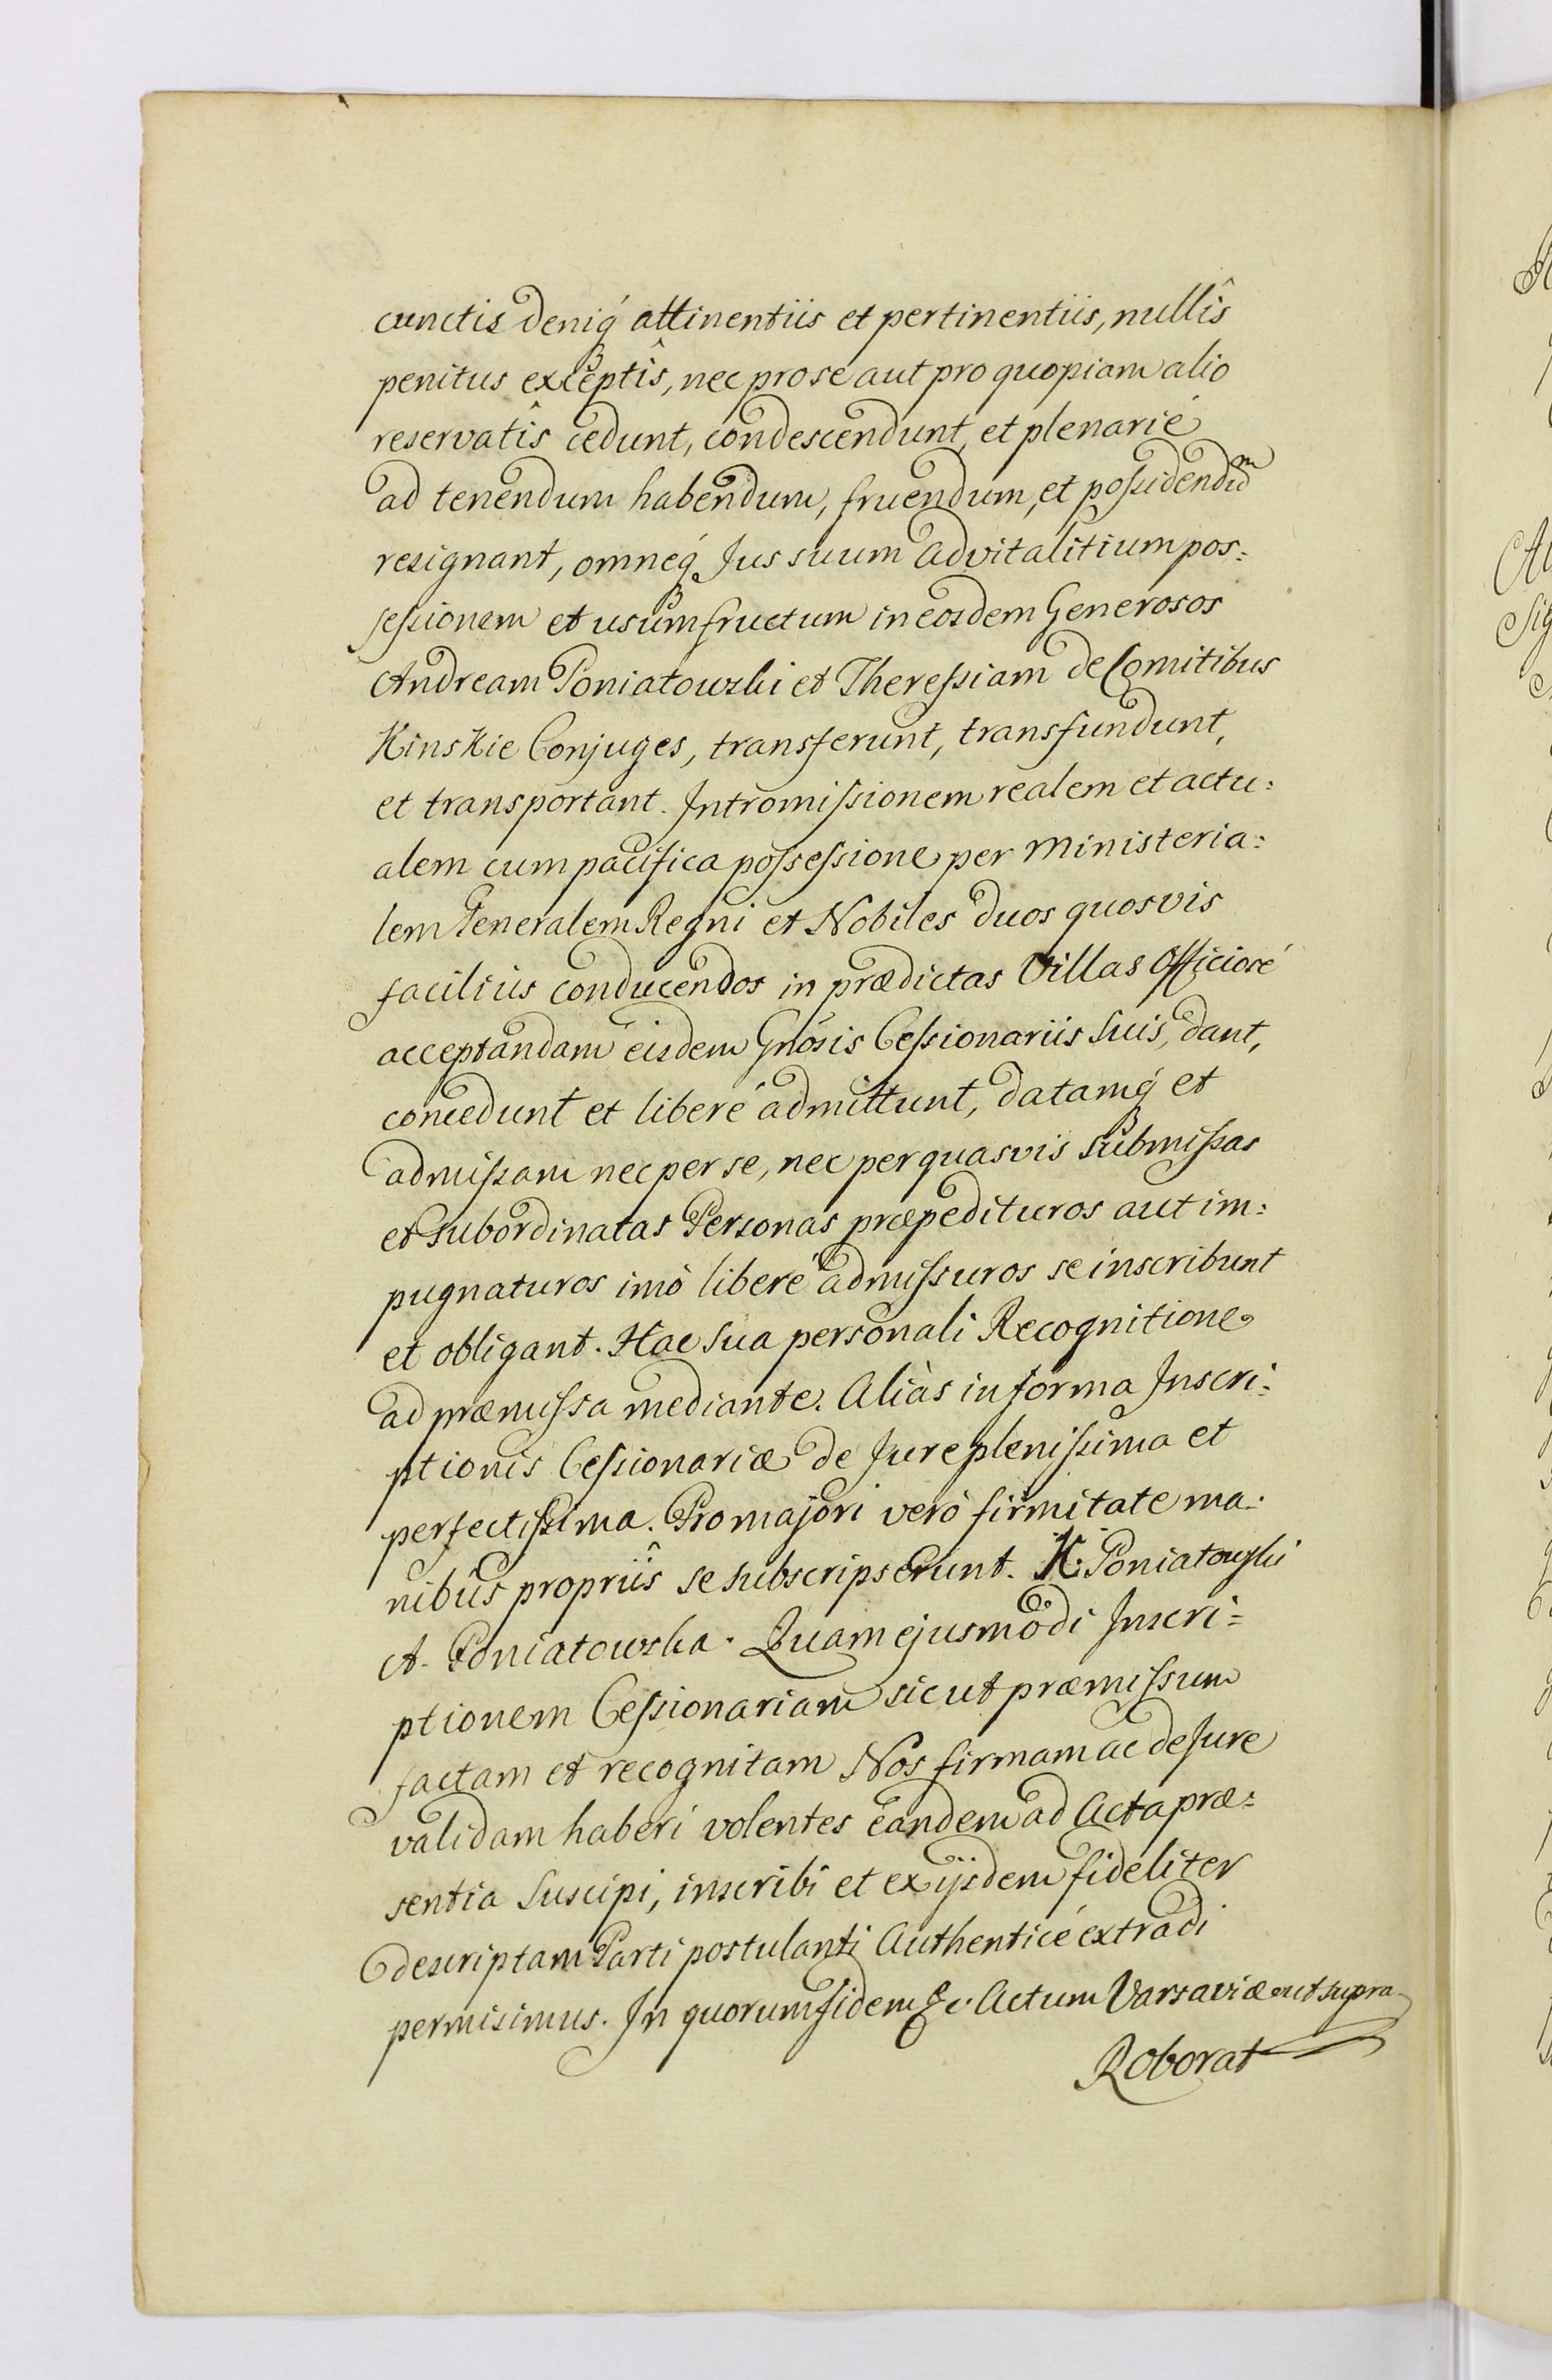 cunctis deniq́ attinentiis et pertinentiis, nullîs
penitus exceptîs, nec pro se aut pro quopiam alio
reservatîs cedunt, condescendunt, et plenarié
ad tenendum habendum, fruendum, et poſsidendũ
resignant, omneq́ Jus suum advitalitium pos:
ſeſsionem et usumfructum in eosdem Generosos
Andream Poniatowski et Thereſsiam de Comitibus
Kinskie Conjuges, transferunt, transfundunt,
et transportant. Intromiſsionem realem et actu:
alem cum pacifica poſseſsione per Ministeria:
lem Generalem Regni et Nobiles duos quosvis
facilius conducendos in prædictas Villas Officiosé
acceptandam eisdem Gnósis Ceſsionariis suis, dant,
concedunt et liberé admittunt, datamq́ et
admiſsam nec per se, nec per quasvis submiſsas
et subordinatas Personas præpedituros aut im:
pugnaturos imò liberé admiſsuros se inscribunt
et obligant. Hac sua personali Recognitione
ad præmiſsa mediante. Aliàs in forma Inscri:
ptionis Ceſsionariæ de Jure pleniſsima et
perfectiſsima. Pro majori verò firmitate ma:
nibus propriîs se subscripserunt. K. Poniatowski
A. Poniatowska. Quam ejusmodi Inscri=
ptionem Ceſsionariam sicut præmiſsum
factam et recognitam Nos firmam ac de Jure
validam haberi volentes eandem ad Acta præ:
sentia suscipi, inscribi et ex ijsdem fideliter
descriptam Parti postulanti Authenticé extradi
permisimus. In quorum fidem &c. Actum Varsaviæ ut supra
Roborat